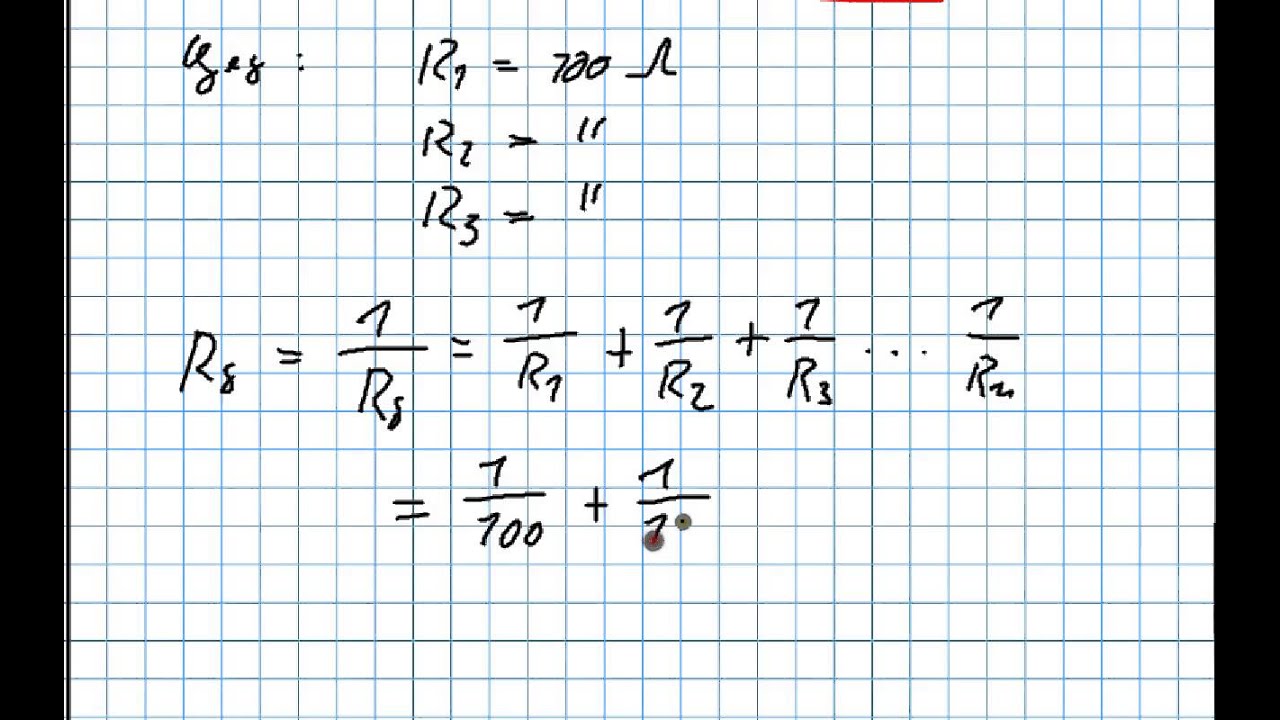 Geg: R1 = 100 Ω
R2 = "
R3 = "
Rg = 1/Rg = 1/R1 + 1/R2 + 1/R3 ... 1/Rn
= 1/100 + 1/1